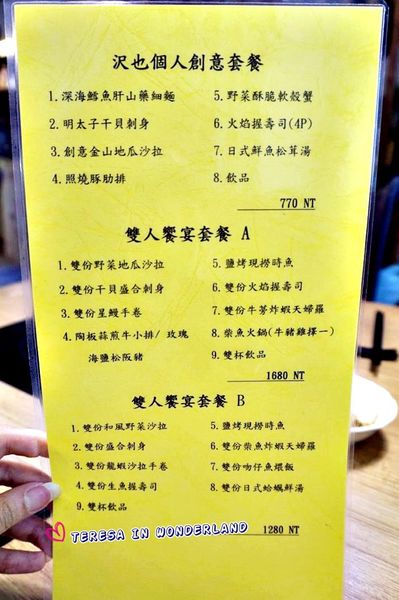 沢也個人創意套餐
1. 深海鱈魚肝山藥細麵
2. 明太子干貝刺身
3. 創意金山地瓜沙拉
4. 照燒豚肋排
5. 野菜酥脆軟殼蟹
6. 火焰握壽司(4P)
7. 日式鮮魚松茸湯
8. 飲品
770 NT
雙人饗宴套餐 A
1. 雙份野菜地瓜沙拉
2. 雙份干貝盛合刺身
3. 雙份星鰻手卷
4. 陶板蒜煎牛小排/ 玫瑰
海鹽松阪豬
5. 鹽烤現撈時魚
6. 雙份火焰握壽司
7. 雙份牛蒡炸蝦天婦羅
8. 柴魚火鍋(牛豬雞擇一)
9. 雙杯飲品
1680 NT
雙人饗宴套餐 B
1. 雙份和風野菜沙拉
2. 雙份盛合刺身
3. 雙份龍蝦沙拉手卷
4. 雙份生魚握壽司
9. 雙杯飲品
5. 鹽烤現撈時魚
6. 雙份柴魚炸蝦天婦羅
7. 雙份吻仔魚煨飯
8. 雙份日式蛤蠣鮮湯
1280 NT
TERESA IN WONDERLAND